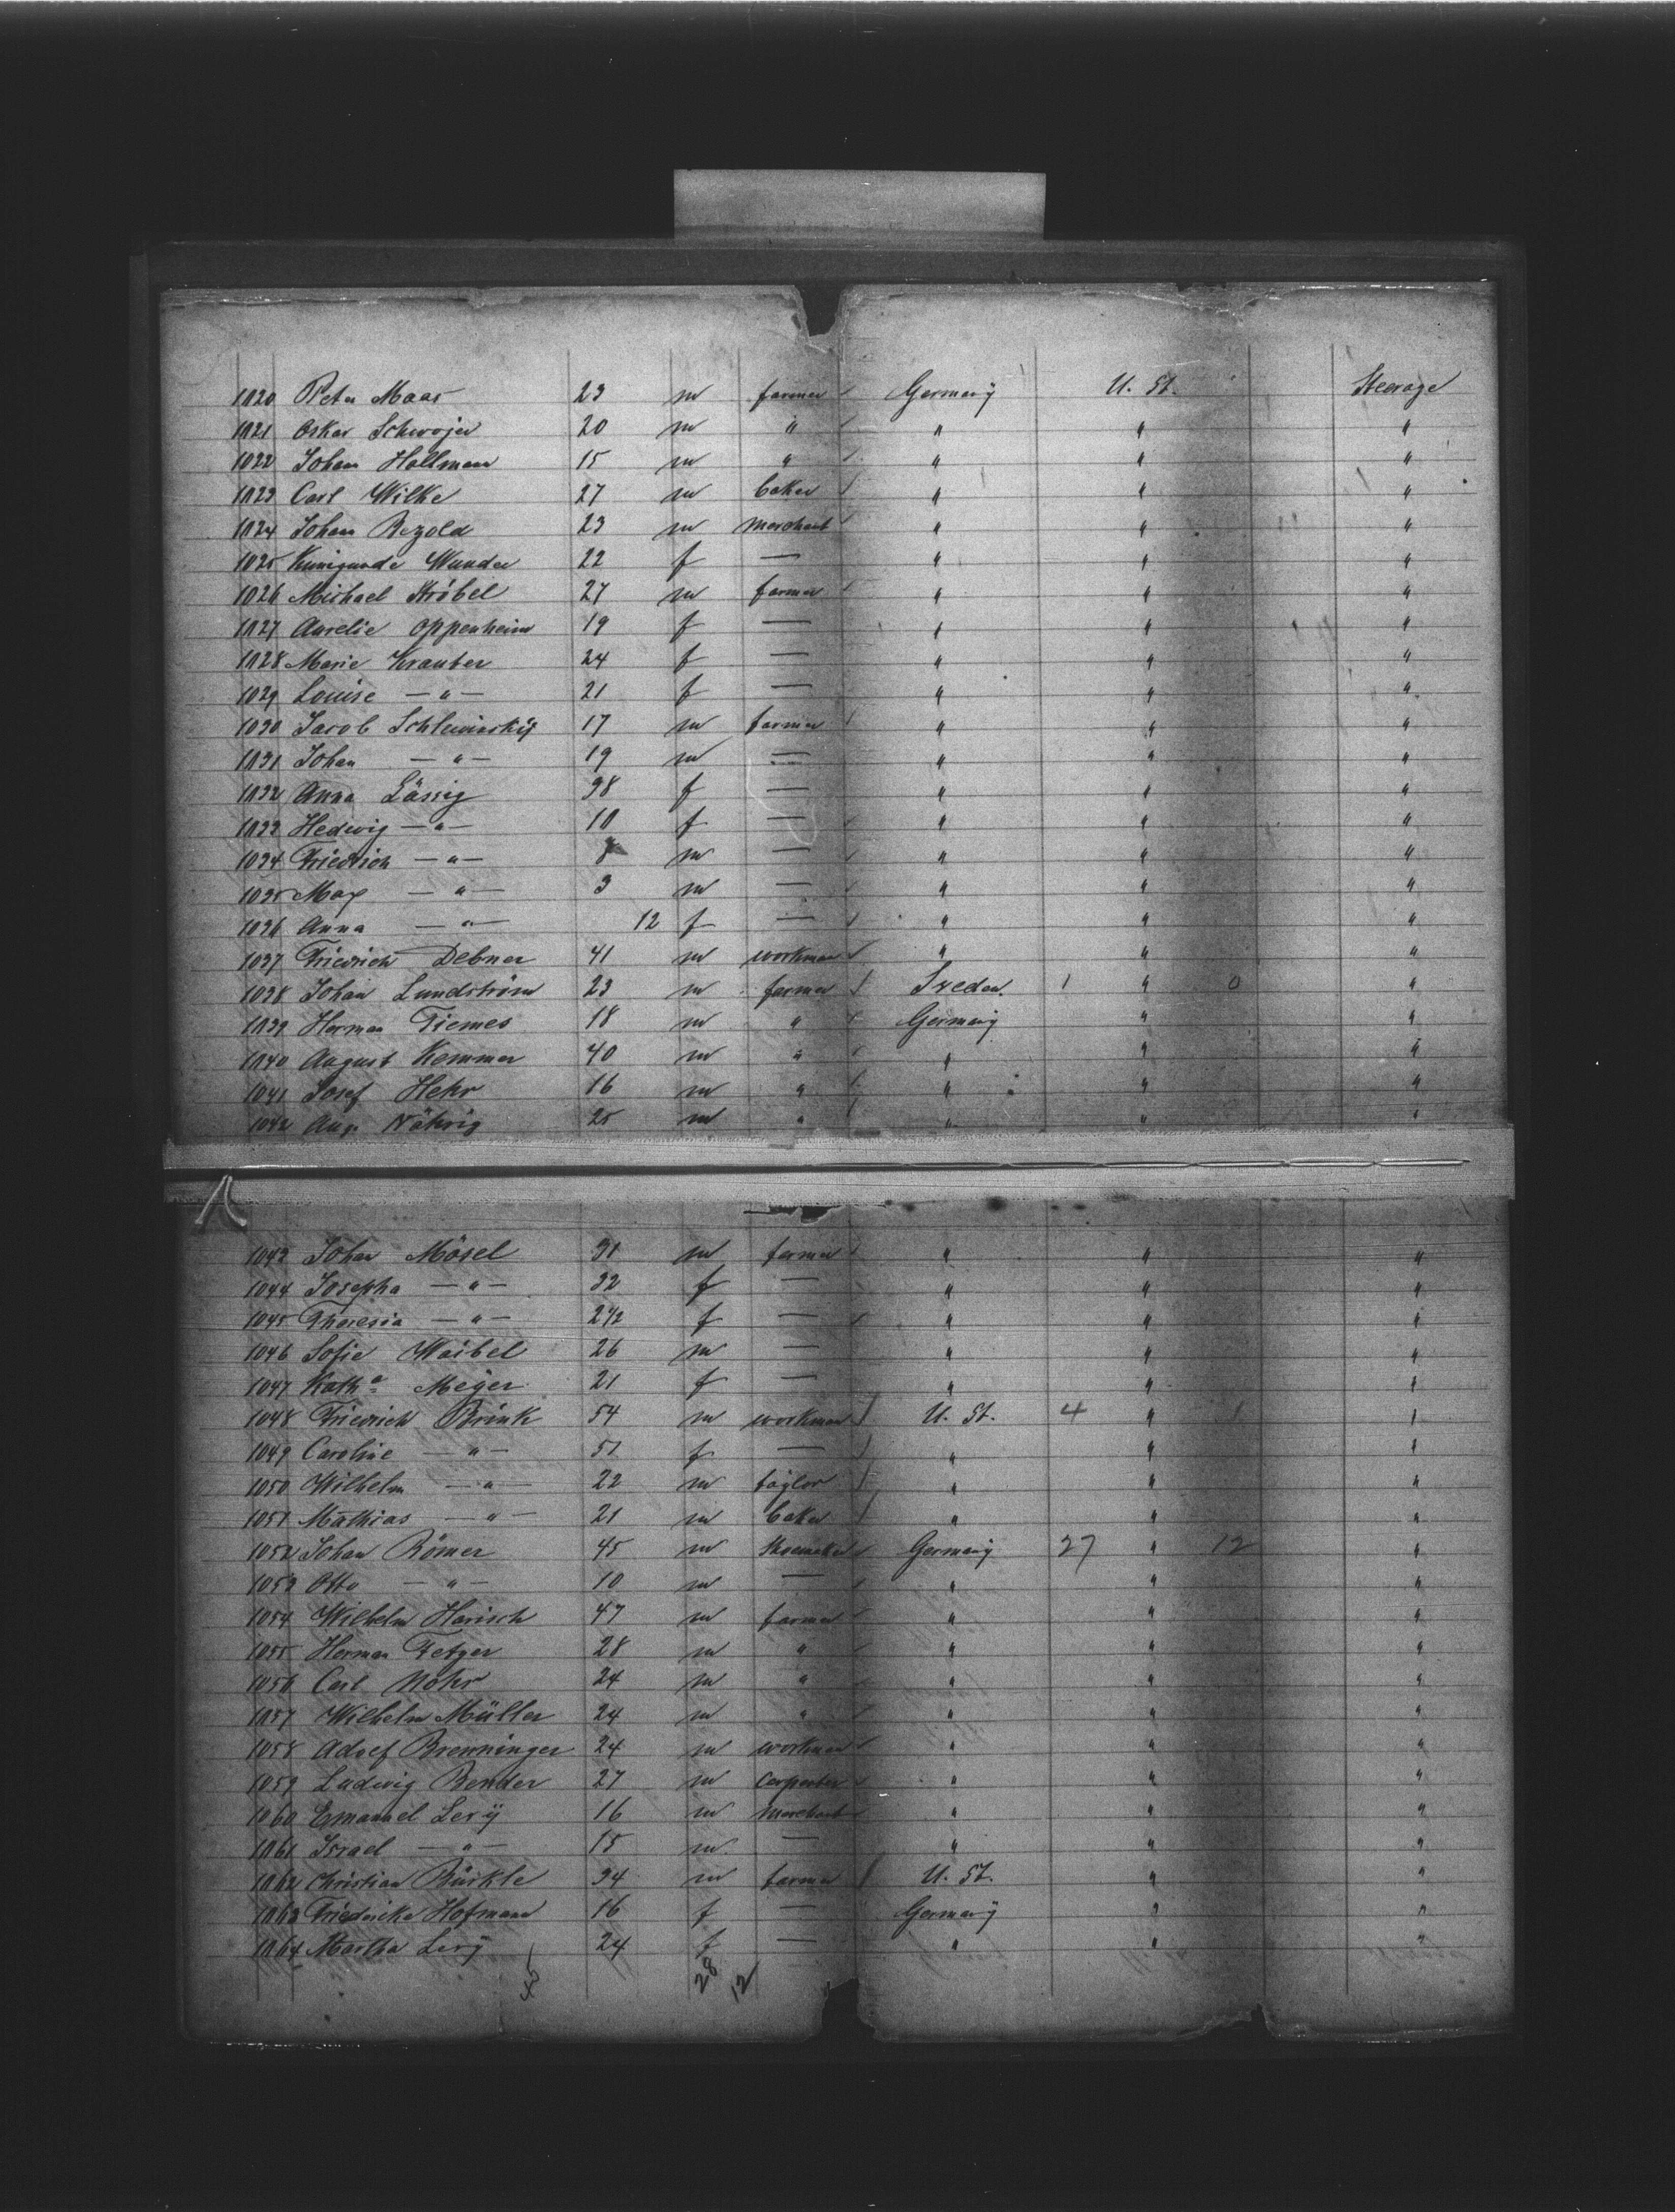 1020 Peter Maas 23 m farmer Germany U. St. Steerage
1021 Oskar Schwojer 20 m " " " "
1022 Johan Hallmann 15 m " " " "
1023 Carl Wilke 27 m baker " " "
1024 Johan Bezold 23 m merchant " " "
1025 Kunigunde Wunder 22 f — " " "
1026 Michael Ströbel 27 m farmer " " "
1027 Aurelie Oppenheim 19 f — " " "
1028 Marie Krauter 24 f — " " "
1029 Louise — " — 21 f — " " "
1030 Jacob Schlewinskÿ 17 m farmer " " "
1031 Johan — " — 19 m — " " "
1032 Anna Lässig 38 f — " " "
1033 Hedwig — " — 10 f — " " "
1034 Friedrich — " — 8 m — " " "
1035 Max — " — 3 m — " " "
1036 Anna — " — 12 f — " " "
1037 Friedrich Debner 41 m workman " " "
1038 Johan Lundström 23 m farmer Sveden. 1 " 0 "
1039 Herman Tiemes 18 m " Germany " "
1040 August Kemmer 40 m " " " "
1041 Josef Hehr 16 m " " " "
1042 Aug. Nährig 25 m " " " "
1043 Johan Mösel 31 m farmer " " "
1044 Josepha — " — 32 f — " " "
1045 Theresia — " — 2 1/2 f — " " "
1046 Sofie Waibel 26 m — " " "
1047 Kath a Meÿer 21 f — " " "
1048 Friedrich Brink 54 m workman U. St. 4 " 1 "
1049 Caroline — " — 51 f — " " "
1050 Wilhelm — " — 22 m taylor " " "
1051 Mathias — " — 21 m baker " " "
1052 Johan Römer 45 m Shoemaker Germany 27 " 12 "
1053 Otto — " — 10 m — " " "
1054 Wilhelm Harisch 47 m farmer " " "
1055 Herman Fetzer 28 m " " " "
1056 Carl Nohr 24 m " " " "
1057 Wilhelm Müller 24 m " " " "
1058 Adolf Brenninger 24 m workman " " "
1059 Ludwig Bender 27 m Carpenter " " "
1060 Emanuel Levÿ 16 m merchant " " "
1061 Israel — " — 15 m — " " "
1062 Christian Bürkle 34 m farmer U. St. " "
1063 Friederike Hofmann 16 f — Germany " "
1064 Martha Levÿ 24 f — " " "
45 28 12